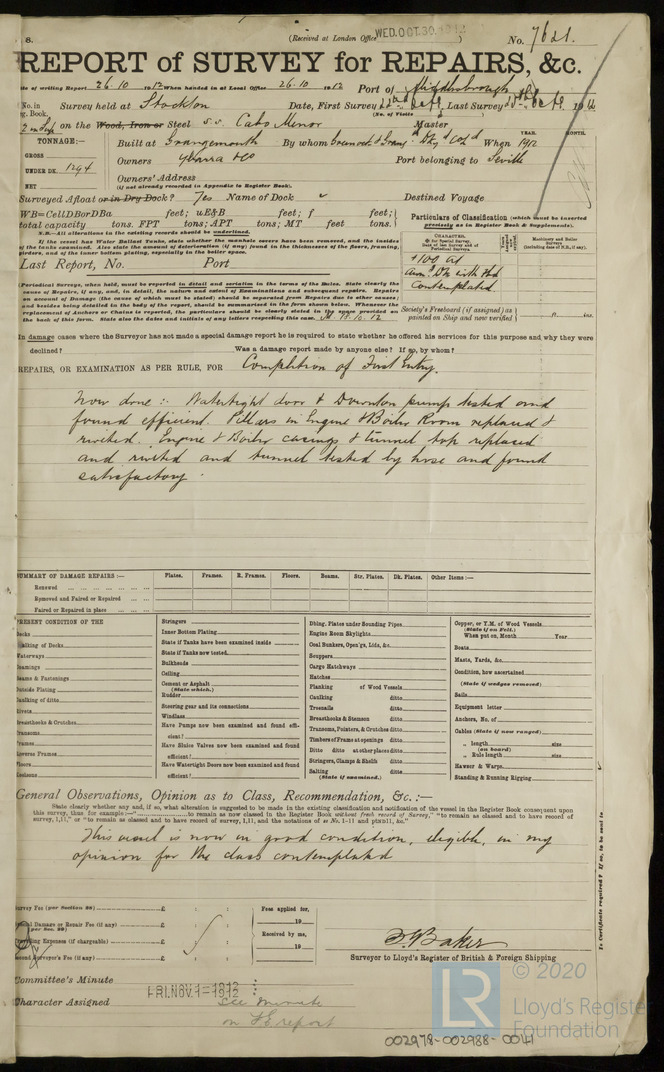 8.
(Received at London Office WED.OCT.30.1912)
No. 7621.
REPORT of SURVEY for REPAIRS, &c.
te of writing Report 26.10 1912 When handed in at Local Office 26.10 1912 Port of Middlesbrough
No. in Survey held at Stockton Date, First Survey 22nd Octr Last Survey 25th Octr 1912
g. Book. (No. of Visits
on the Wood, Iron or Steel S.S. Cabo Menor Master
TONNAGE:— Built at Grangemouth By whom Grangemouth & Dkyd Cod When 1912
YEAR. MONTH.
GROSS
UNDER DK. 1294 Owners Ybarra & Co Port belonging to Seville
NET Owners' Address
(if not already recorded in Appendix to Register Book).
Surveyed Afloat or in Dry Dock? Yes Name of Dock Destined Voyage
WB=CellDBorDBa feet; uE&B feet; f feet;
total capacity tons. FPT tons; APT tons; MT feet tons.
N.B.—All alterations in the existing records should be underlined.
If the vessel has Water Ballast Tanks, state whether the manhole covers have been removed, and the insides
of the tanks examined. Also state the amount of deterioration (if any) found in the thicknesses of the floors, framing,
girders, and of the inner bottom plating, especially in the boiler space.
Last Report, No. Port
Particulars of Classification (which must be inserted
precisely as in Register Book & Supplements).
CHARACTER.
Machinery and Boiler
Surveys
(including date of N.B., if any).
+100 A1
contemplated
(Periodical Surveys, when held, must be reported in detail and seriatim in the terms of the Rules. State clearly the
cause of Repairs, if any, and, in detail, the nature and extent of Examinations and subsequent repairs. Repairs
on account of Damage (the cause of which must be stated) should be separated from Repairs due to other causes;
and besides being detailed in the body of the report, should be summarised in the form shown below. Whenever the
replacement of Anchors or Chains is reported, the particulars should be clearly stated in the space provided on
the back of this form. State also the dates and initials of any letters respecting this case. 18.10.12
Society's Freeboard (if assigned) as
painted on Ship and now verified ft. ins.
In damage cases where the Surveyor has not made a special damage report he is required to state whether he offered his services for this purpose and why they were
declined? Was a damage report made by anyone else? If so, by whom?
REPAIRS, OR EXAMINATION AS PER RULE, FOR Completion of First Entry.
Now done :- Watertight door & Downton pump tested and
found efficient. Pillars in Engine & Boiler Room replaced &
riveted. Engine & Boiler casings & tunnel top replaced
and riveted and tunnel tested by hose and found
satisfactory.
SUMMARY OF DAMAGE REPAIRS :— Plates. Frames. R. Frames. Floors. Beams. Str. Plates. Dk. Plates. Other Items :—
Renewed
Removed and Faired or Repaired
Faired or Repaired in place
PRESENT CONDITION OF THE
Decks
Caulking of Decks
Waterways
Coamings
Beams & Fastenings
Outside Plating
Caulking of ditto
Rivets
Breasthooks & Crutches
Transoms
Frames
Reverse Frames
Floors
Keelsons
Stringers
Inner Bottom Plating
State if Tanks have been examined inside
State if Tanks now tested
Bulkheads
Ceiling
Cement or Asphalt
(State which.)
Rudder
Steering gear and its connections
Windlass
Have Pumps now been examined and found effi-
cient?
Have Sluice Valves now been examined and found
efficient?
Have Watertight Doors now been examined and found
efficient?
Dbing. Plates under Sounding Pipes
Engine Room Skylights
Coal Bunkers, Open'gs, Lids, &c.
Scuppers
Cargo Hatchways
Hatches
Planking of Wood Vessels
Caulking ditto
Treenails ditto
Breasthooks & Stemson ditto
Transoms, Pointers, & Crutches ditto
Timbers of Frame at openings ditto
Ditto ditto at other places ditto
Stringers, Clamps & Shelfs ditto
Salting ditto
(State if examined.)
Copper, or Y.M. of Wood Vessels
(State if on Felt.)
When put on, Month Year
Boats
Masts, Yards, &c.
Condition, how ascertained
(State if wedges removed)
Sails
Equipment letter
Anchors, No. of
Cables (State if now ranged)
„ length size
(on board)
„ Rule length size
Hawser & Warps
Standing & Running Rigging
General Observations, Opinion as to Class, Recommendation, &c. :—
State clearly whether any, if so, what alteration is suggested to be made in the existing classification and notification of the vessel in the Register Book consequent upon
this survey, thus for example :—“ to remain as now classed in the Register Book without fresh record of Survey,” “to remain as classed and to have record of
survey, 1,11,” or “to remain as classed and to have record of survey, 1,11, and the notations of
This vessel is now in good condition, eligible, in my
opinion for the class contemplated
Is Certificate required? If so, to be sent to
Survey Fee (per Section 28) £ : :
Special Damage or Repair Fee (if any) £ : :
(per Sec. 28)
Travelling Expenses (if chargeable) £ : :
Second Surveyor's Fee (if any) £ : :
Fees applied for,
19
Received by me,
19
Baker
Surveyor to Lloyd's Register of British & Foreign Shipping
Committee's Minute FRI. NOV. 1-1912
Character Assigned See minute
on FE report
© 2020
LR
Lloyd's Register
Foundation
002978-002988-0041